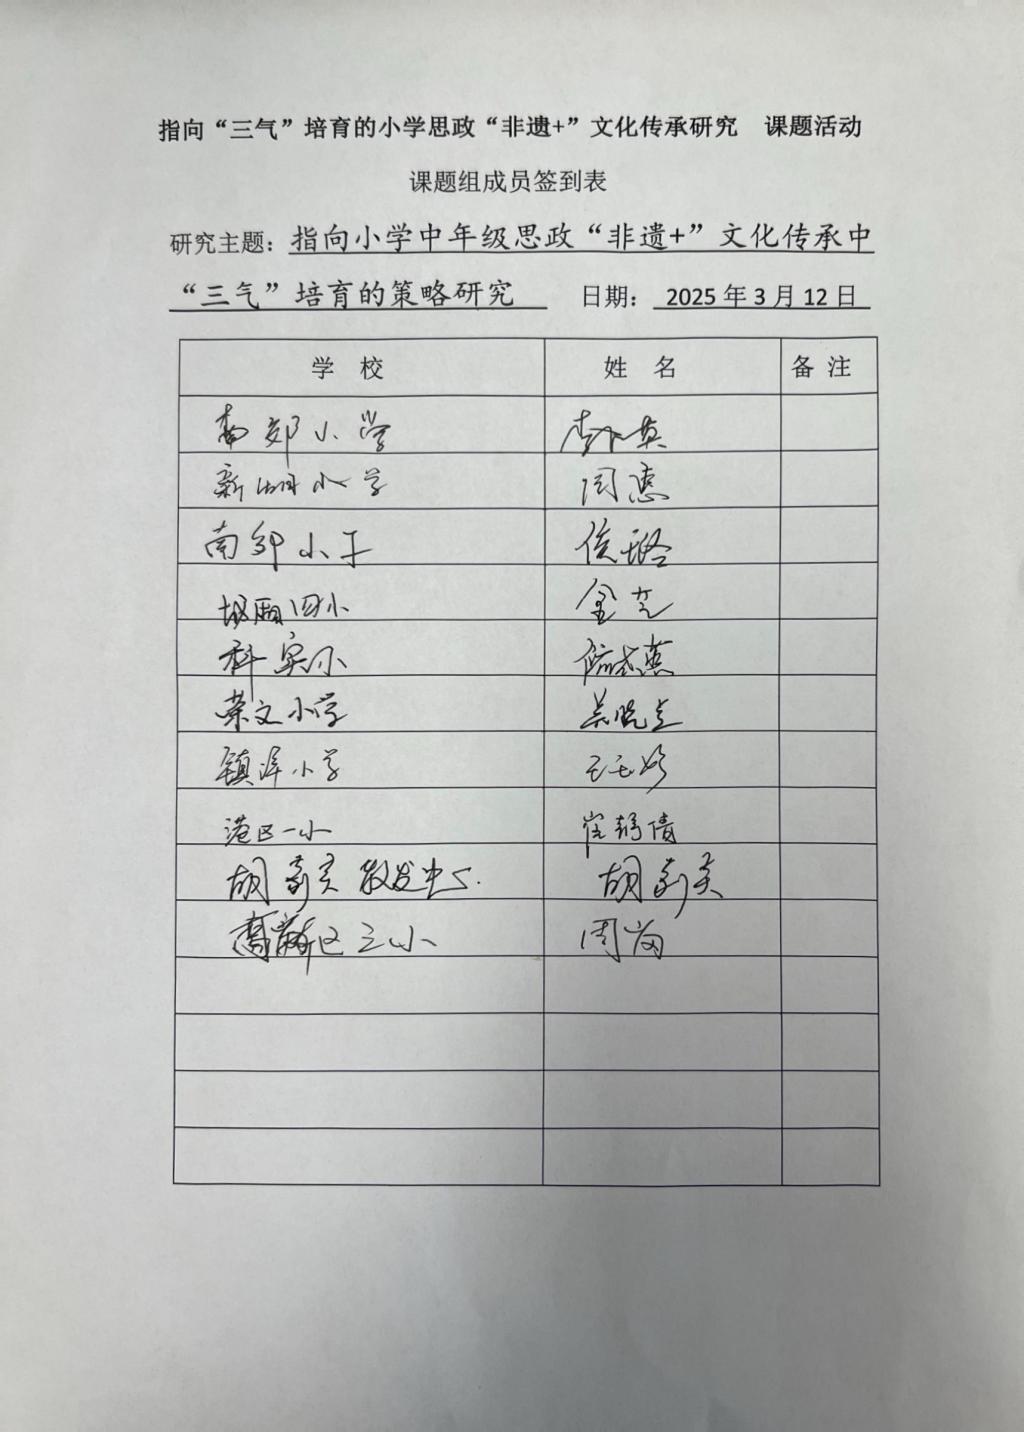 指向“三气”培育的小学思政“非遗+”文化传承研究　课题活动
课题组成员签到表
研究主题：指向小学中年级思政“非遗+”文化传承中
“三气”培育的策略研究　日期：2025年3月12日
学 校　姓 名　备 注
南郊小学
新湖小学　闫惠
南郊小学　侯璐
城厢四小　金芝
科实小
荣文小学　吴晓兰
镇洋小学
港区一小　崔静倩
胡
高新区三小　周岗